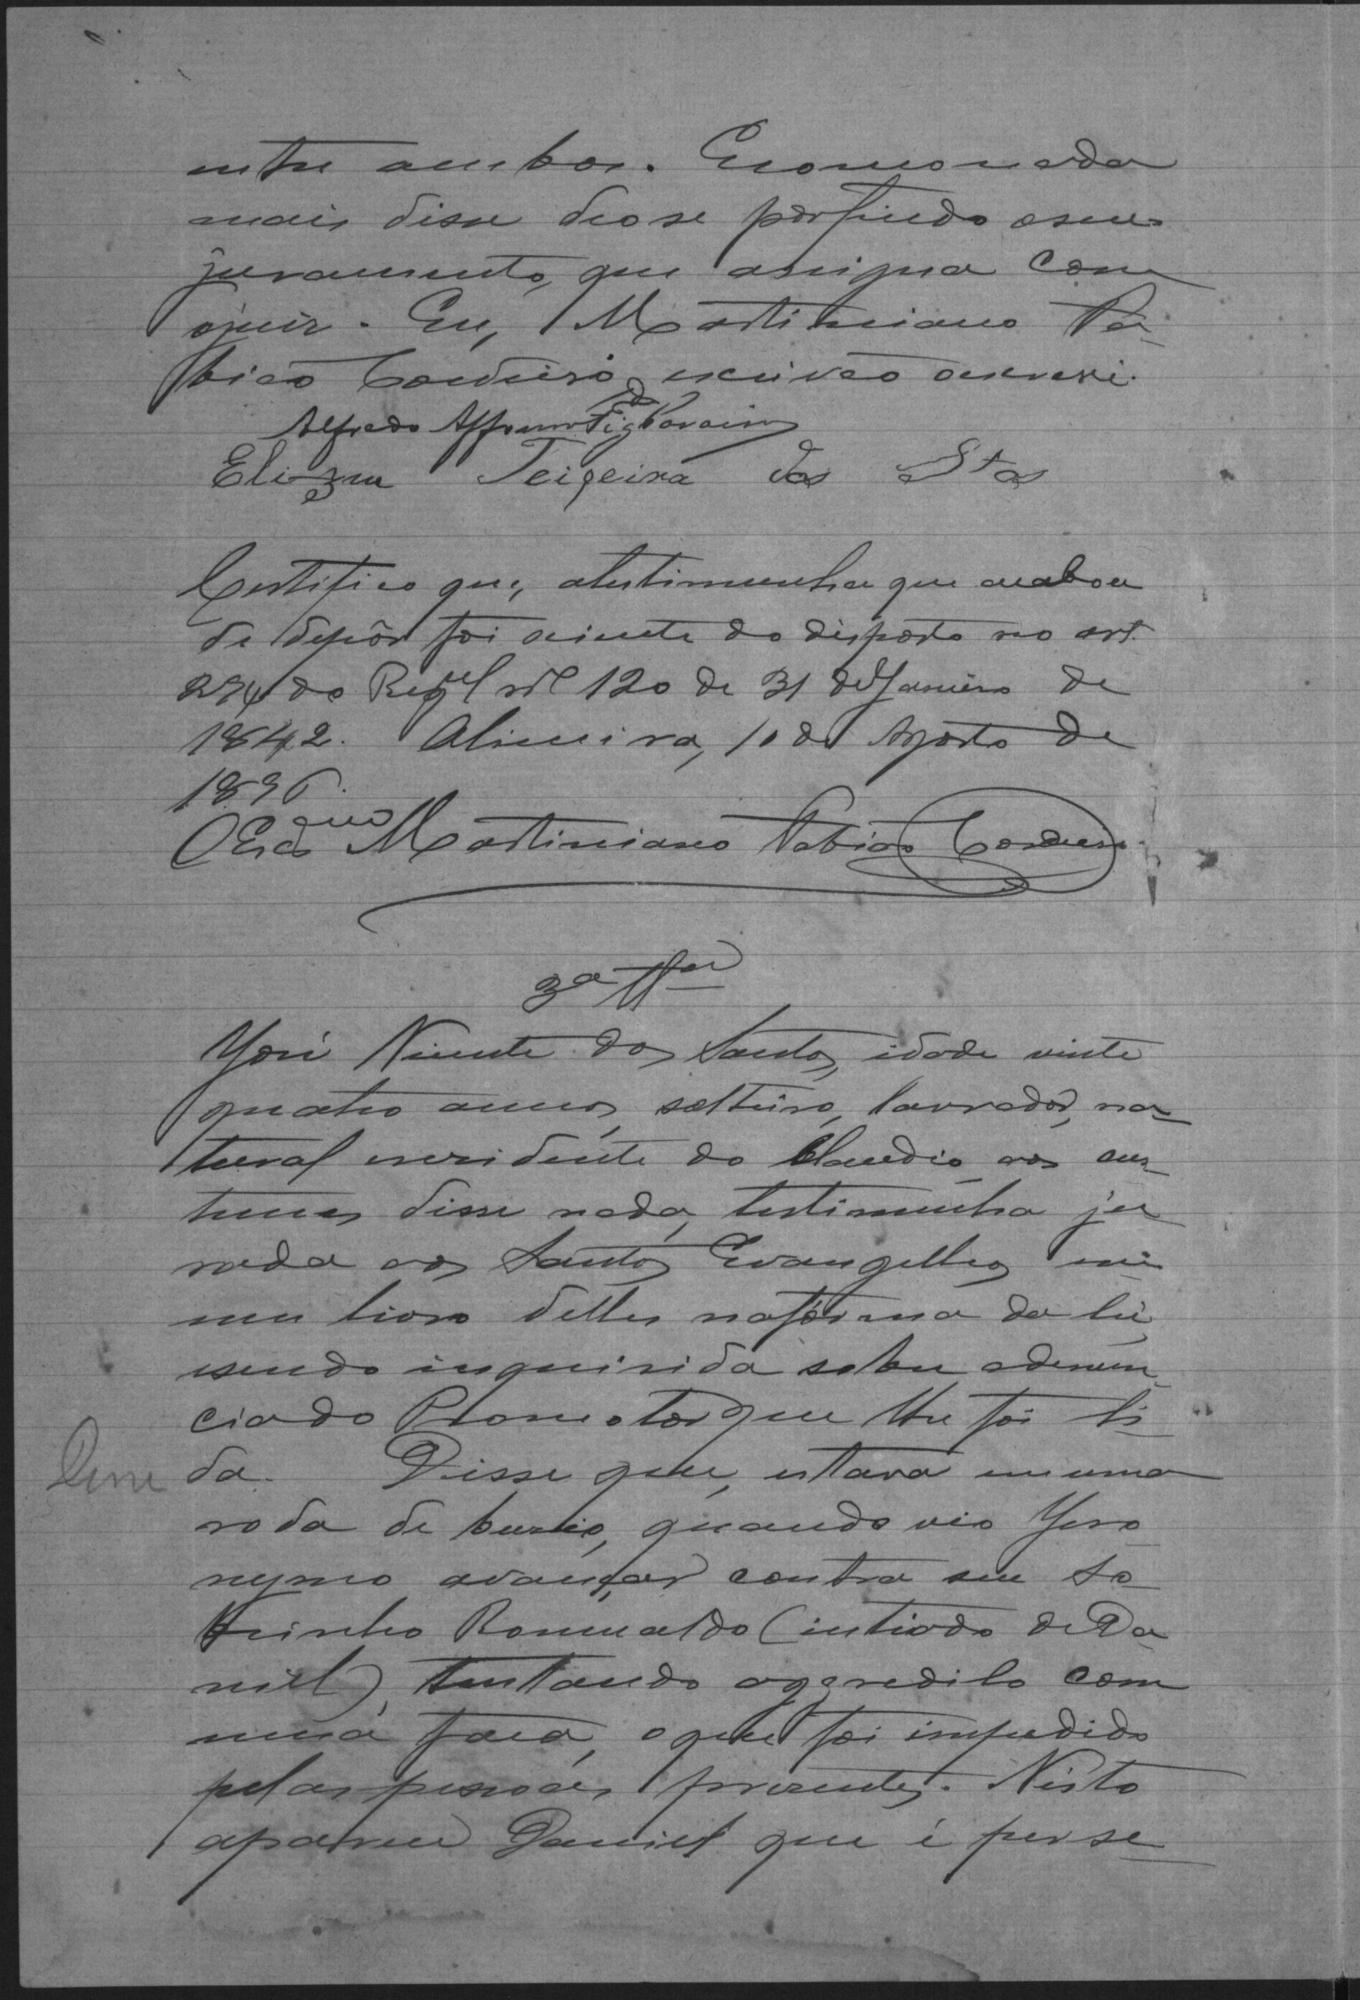 entre ambos. E como nada
mais disse deo se por findo o seu
juramento, que assigna com
o juiz. Eu, Martiniano Fa-
bião Cordeiro, escrivão escrevi.
Alfredo Affonso
Teixeira dos Stos
Certifico que, a testimunha que acabou
de depôr foi sciente do disposto no art.
294 do Regul nº 120 de 31 de Janeiro de
1842. Limeira, 10 de Agosto de
1896.
O Escrivão Martiniano Fabião Cordeiro
3ª Ttª
José Vicente dos Santos, idade vinte
quatro annos, solteiro, lavrador, na-
tural e residente do Claudio, aos cus-
tumes disse nada, testimunha ju-
rada aos Santos Evangelhos em
um livro delles na fórma da lei,
e sendo inquirida sobre a denun-
cia do Promotor que lhe foi li-
da. Disse que, estava em uma
roda de buzio, quando vio Jero
nymo avançar contra seu so-
brinho Romualdo (intiado de Da-
niel), tentando aggredilo com
uma faca, o que foi impedido
pelas pessoas presentes. Nisto
apareceu Daniel que é perse-